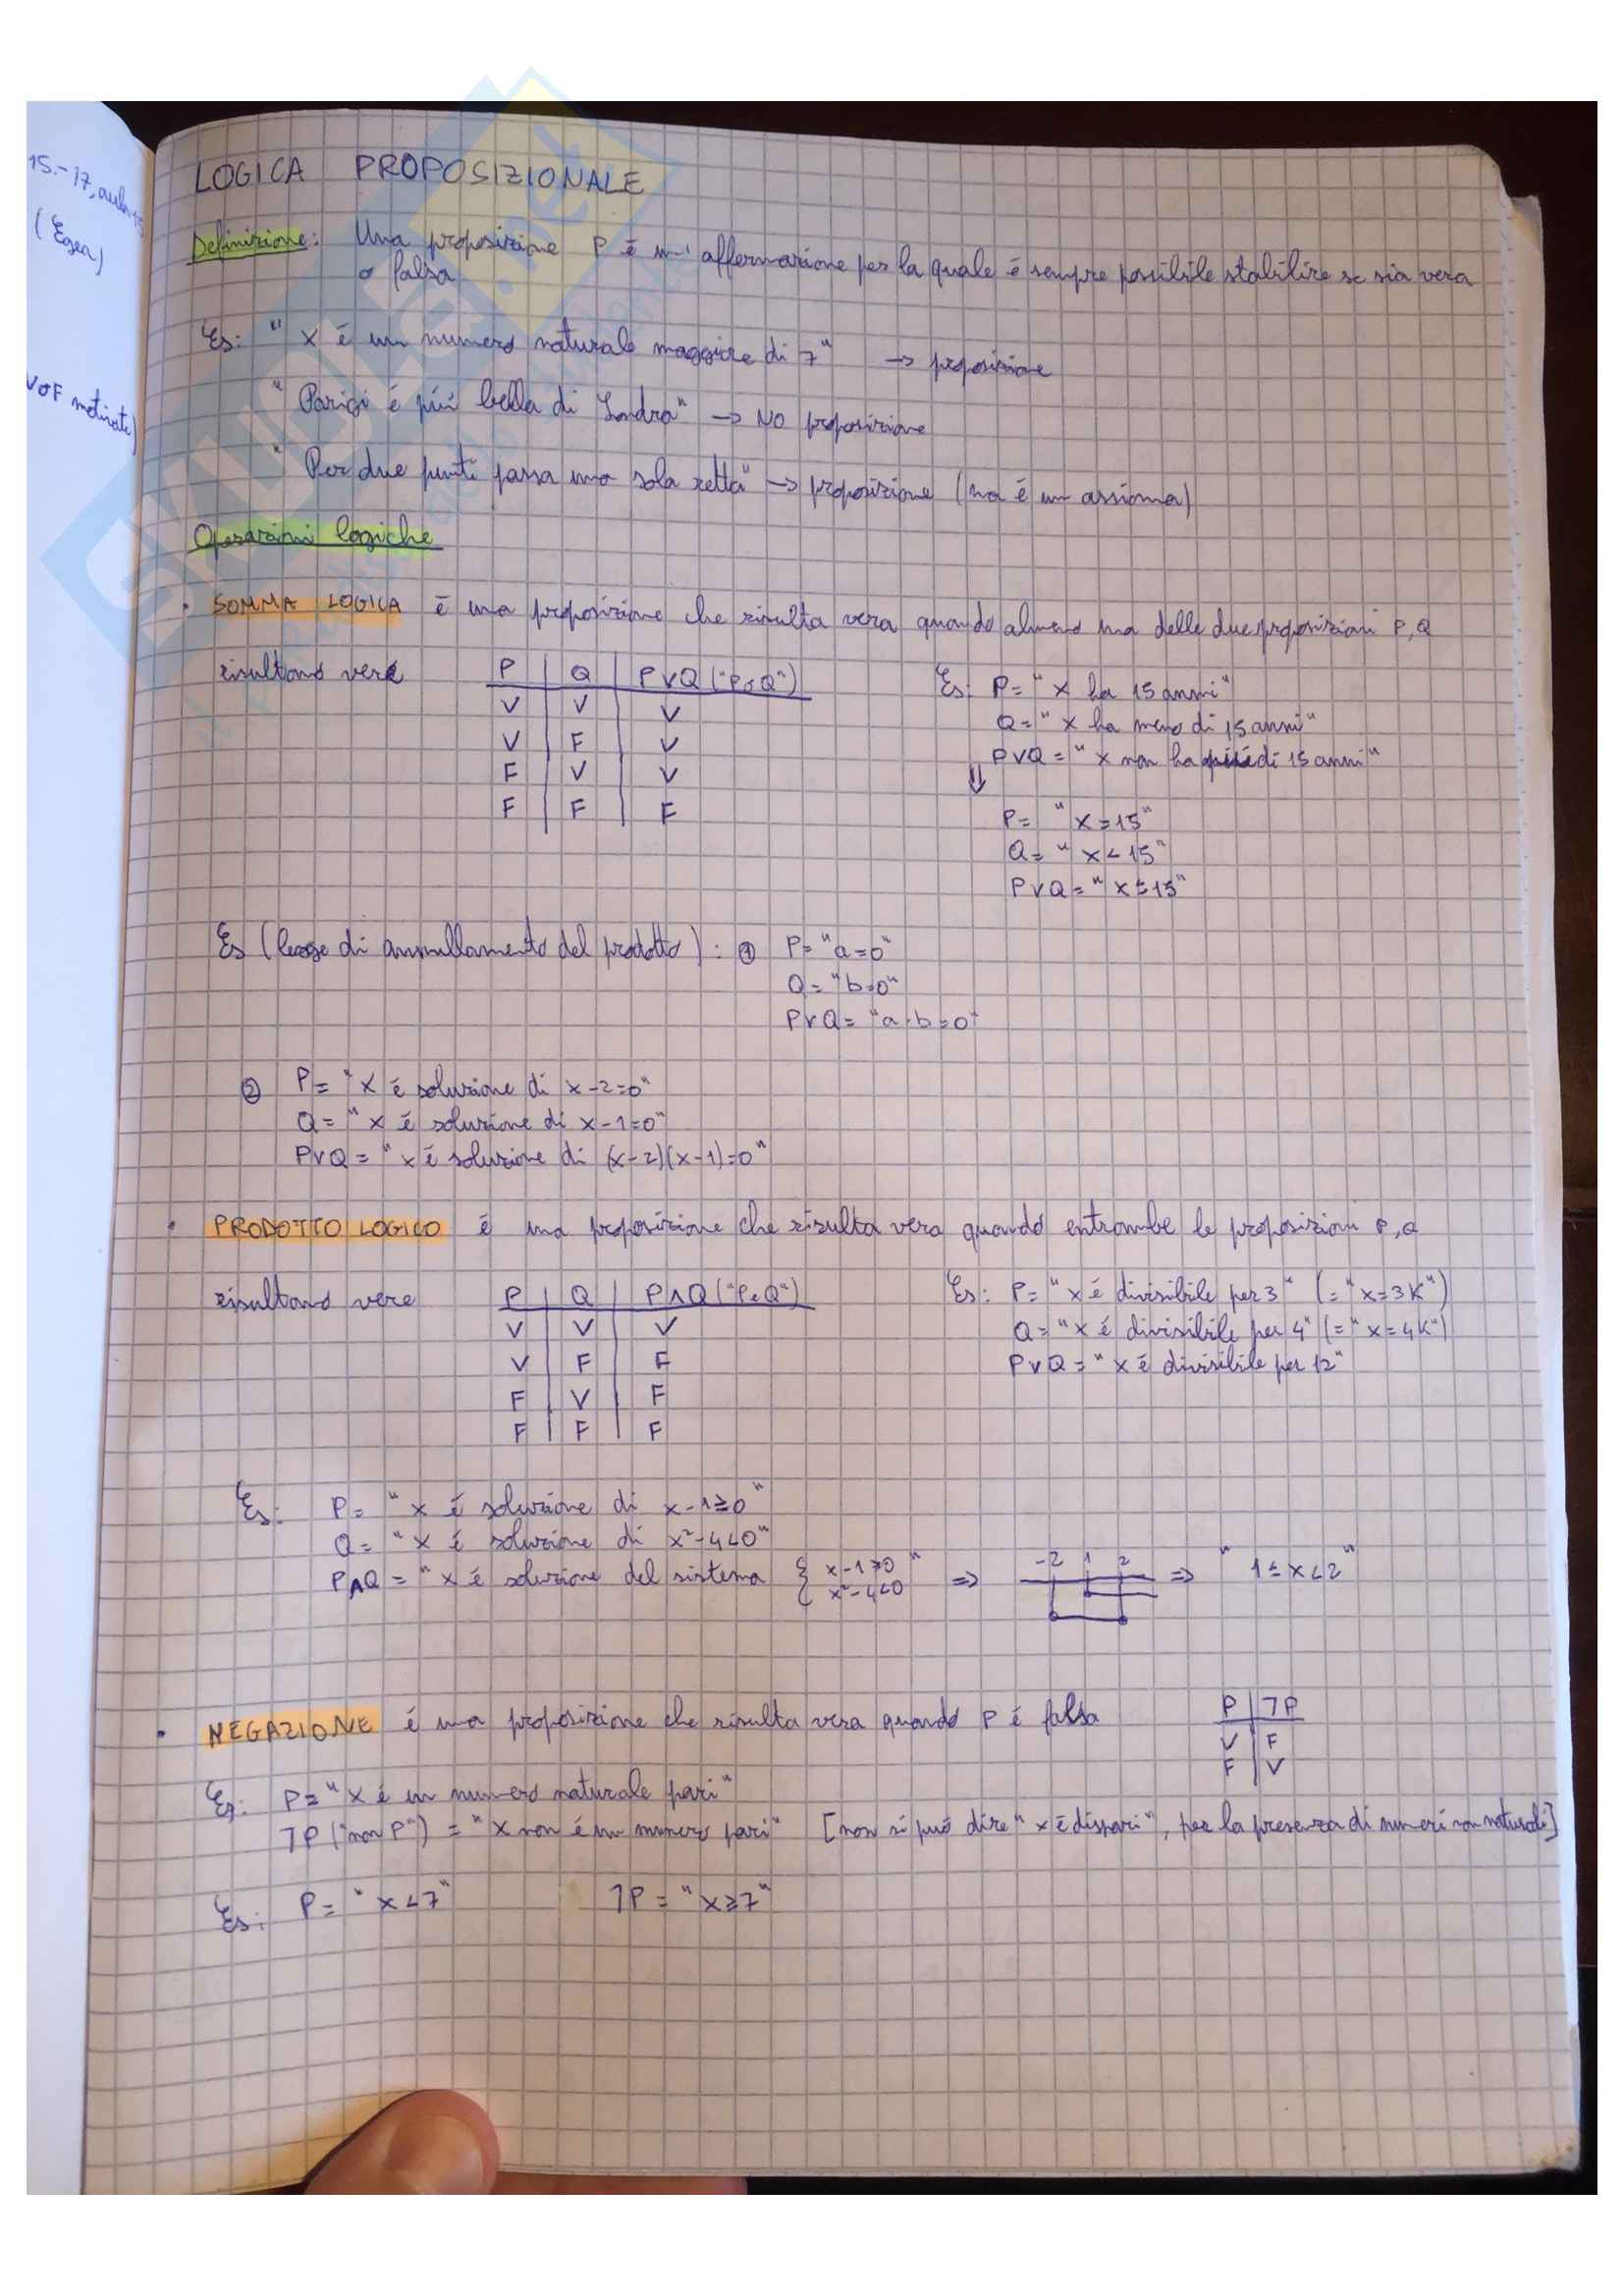 LOGICA PROPOSIZIONALE
Definizione: Una proposizione P é un' affermazione per la quale é sempre possibile stabilire se sia vera
o falsa
Es: "x é un numero naturale maggiore di 7" -> proposizione
"Parigi é piú bella di Londra" -> NO proposizione
"Per due punti passa una sola retta" -> proposizione (ma é un assioma)
Operazioni logiche
• SOMMA LOGICA é una proposizione che risulta vera quando almeno una delle due proposizioni P,Q
risultano vere
P | Q | P∨Q ("P o Q")
V | V | V
V | F | V
F | V | V
F | F | F
Es: P= "x ha 15 anni"
Q= "x ha meno di 15 anni"
P∨Q = "x non ha piú di 15 anni"
⇓
P= "x=15"
Q= "x<15"
P∨Q= "x≤15"
Es (legge di annullamento del prodotto): ① P= "a=0"
Q= "b=0"
P∨Q= "a·b=0"
② P= "x é soluzione di x-2=0"
Q= "x é soluzione di x-1=0"
P∨Q = "x é soluzione di (x-2)(x-1)=0"
• PRODOTTO LOGICO é una proposizione che risulta vera quando entrambe le proposizioni P,Q
risultano vere
P | Q | P∧Q ("P e Q")
V | V | V
V | F | F
F | V | F
F | F | F
Es: P= "x é divisibile per 3" (="x=3K")
Q= "x é divisibile per 4" (="x=4K")
P∨Q = "x é divisibile per 12"
Es: P= "x é soluzione di x-1≥0"
Q= "x é soluzione di x²-4<0"
P∧Q = "x é soluzione del sistema { x-1≥0 x²-4<0 " => -2 1 2 => "1≤x<2"
• NEGAZIONE é una proposizione che risulta vera quando P é falsa
P | ¬P
V | F
F | V
Es: P= "x é un numero naturale pari"
¬P ("non P") = "x non é un numero pari" [non si puó dire "x é dispari", per la presenza di numeri non naturali]
Es: P= "x<7" ¬P = "x≥7"
15-17, aula
(Egea)
V o F motivate)